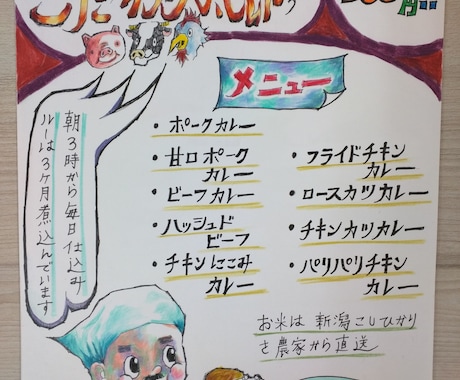 メニュー
・ポークカレー
・甘口ポーク
カレー
・ビーフカレー
・ハッシュド
ビーフ
・チキンにこみ
カレー
・フライドチキン
カレー
・ロースカツカレー
・チキンカツカレー
・パリパリチキン
カレー
朝3時から毎日仕込み
ルーは3ヶ月煮込んでいます
お米は新潟こしひかり
を農家から直送